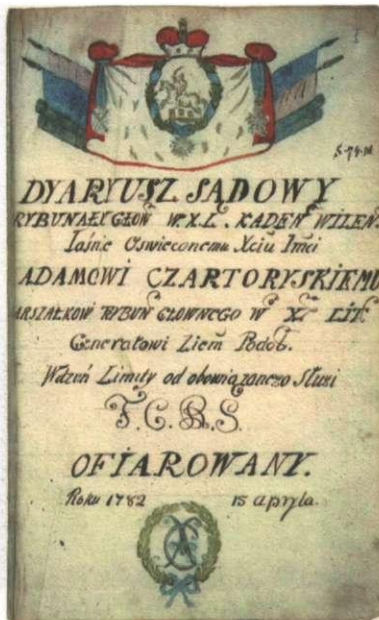 DYARYUSZ SĄDOWY
RYBUNAŁŲ GŁOW W.X.L. KADEN WILEN.
Iaśnie Oswieconemu Xciu Imci
ADAMOWI CZARTORYSKIEMU
ARSZAŁKOWI TRYBUN GŁOWNEGO W X LIT.
Generałowi Ziem Podol.
Wdzień Limity od obowiązanego Sługi
F.C.R.S.
OFIAROWANY.
Roku 1782 15 Apryla.